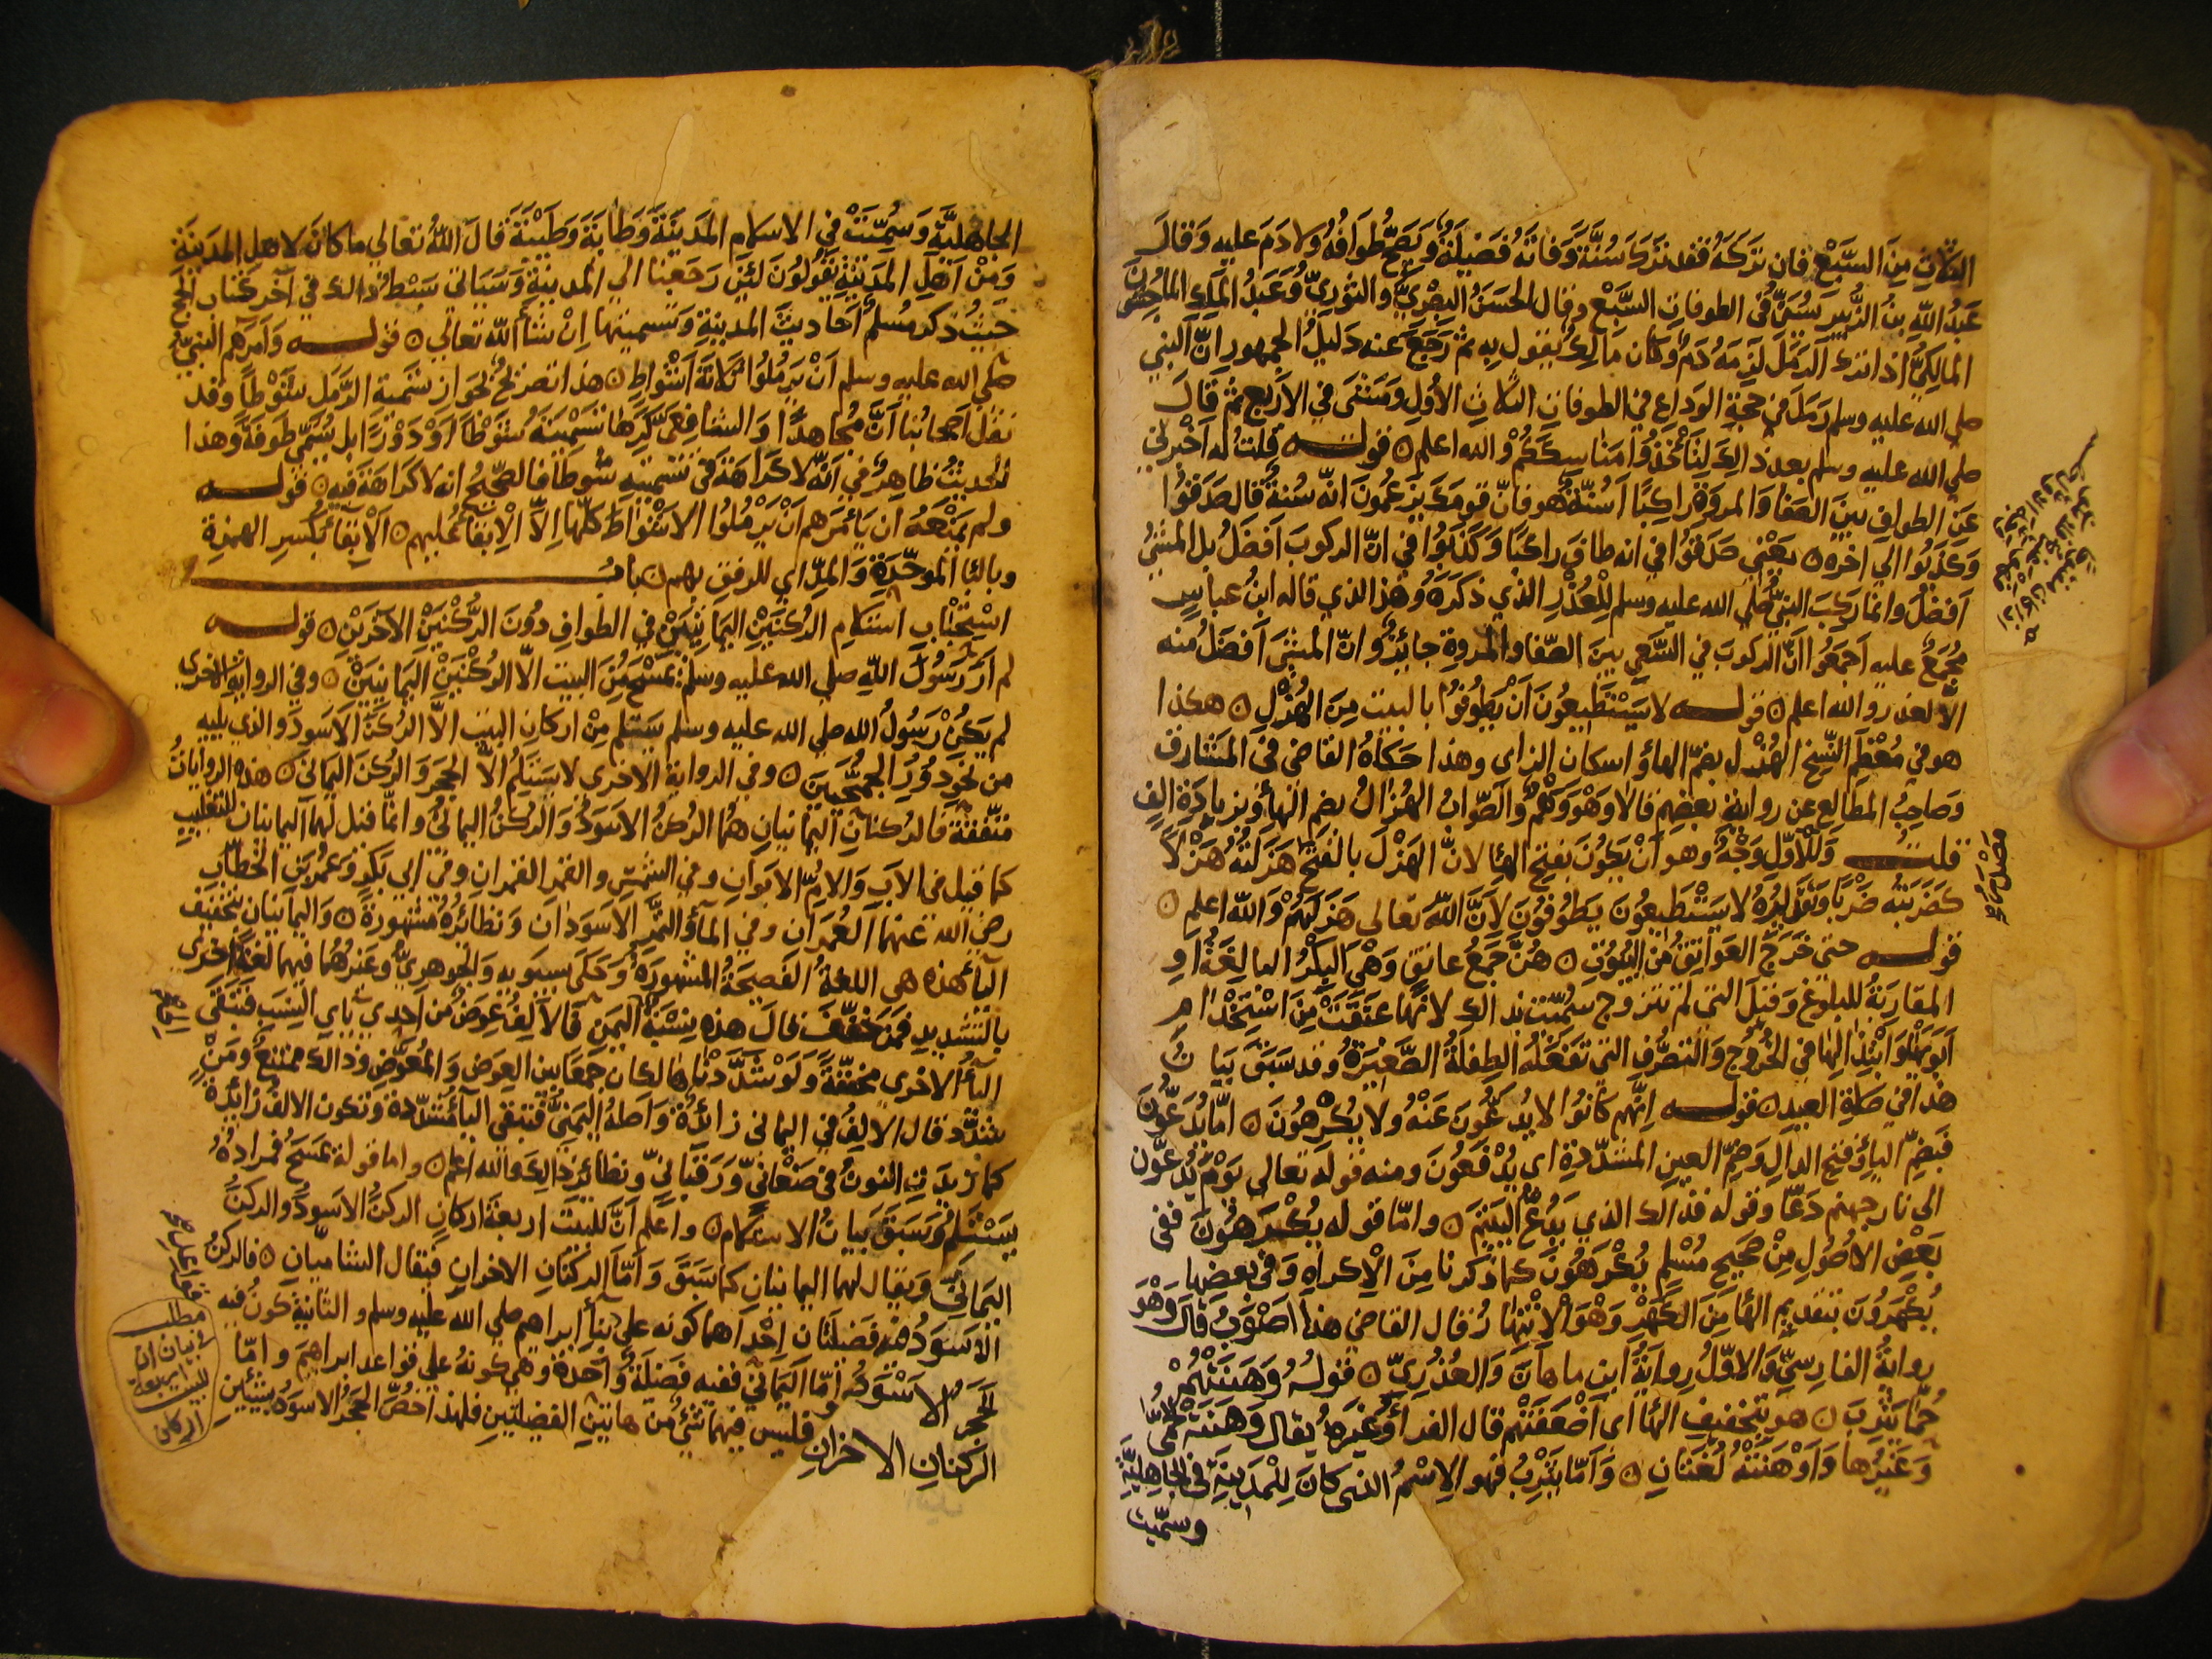 الثلاث من السبع فان تركه فقد ترك سنة وفاته فضيلة ويصح طوافه ولا دم عليه وقال
عبد الله بن الزبير يسن في الطوفات السبع وقال الحسن البصري والثوري وعبد الملك الماجشون
المالكي اذا ترك الرمل لزمه دم وكان مالك يقول به ثم رجع عنه دليل الجمهور ان النبي
صلي الله عليه وسلم رمل في حجة الوداع في الطوفات الثلاث الاول ومشى في الاربع ثم قال
صلي الله عليه وسلم بعد ذالك لتاخذوا مناسككم والله اعلم ٥ قوله قلت له اخبرني
عن الطواف بين الصفا والمروة راكبا اسنة هو فان قومك يزعمون انه سنة قال صدقوا
وكذبوا الي اخره ٥ يعني صدقوا في انه طاف راكبا وكذبوا في ان الركوب افضل بل المشي
افضل وانما ركب النبي صلي الله عليه وسلم للعذر الذي ذكره وهذا الذي قاله ابن عباس
مجمع عليه اجمعوا ان الركوب في السعي بين الصفا والمروة جائز وان المشى افضل منه
الا لعذر والله اعلم ٥ قوله لا يستطيعون ان يطوفوا بالبيت من الهزل ٥ هكذا
هو في معظم النسخ الهزل بضم الهاء واسكان الزاي وهذا حكاه القاضي في المشارق
وصاحب المطالع عن رواية بعضهم قالا وهو وهم والصواب الهزال بضم الهاء وبزيادة الف
قلت وللاول وجه وهو ان يكون بفتح الها لان الهزل بالفتح هزلته هزلا
كضربته ضربا وتقديره لا يستطيعون يطوفون لان الله تعالى هزلهم والله اعلم ٥
قوله حتى خرج العواتق من البيوت ٥ هن جمع عاتق وهي البكر البالغة او
المقاربة للبلوغ وقيل التي لم تتزوج سميت بذالك لانها عتقت من استخدام
ابويها وابتذالها في الخروج والتصرف التي تفعله الطفلة الصغيرة وقد سبق بيان
هذا في صلاة العيد ٥ قوله انهم كانوا لا يدعون عنه ولا يكرهون ٥ اما يدعون
فبضم الياء وفتح الدال وضم العين المشددة اي يدفعون ومنه قوله تعالى يوم يدعون
الى نار جهنم دعا وقوله فذالك الذي يدع اليتيم ٥ واما قوله يكرهون ففي
بعض الاصول من صحيح مسلم يكرهون كما ذكرنا من الاكراه وفي بعضها
يكهرون بتقديم الها من الكهر وهو الانتهار قال القاضي هذا اصوب قال وهو
رواية الفارسي والاول رواية ابن ماهان والعذري ٥ قوله وهنتهم
حما يثرب ٥ هو بتخفيف الها اي اضعفتهم قال الفراء وغيره يقال وهنته الحمى
وغيرها واوهنته لغتان ٥ واما يثرب فهو الاسم الذي كان للمدينة في الجاهلية
وسميت
الجاهلية وسميت في الاسلام المدينة وطابة وطيبة قال الله تعالي ما كان لاهل المدينة
ومن اهل المدينة يقولون لئن رجعنا الي المدينة وسياتي بسط ذالك في آخر كتاب الحج
حيث ذكر مسلم احاديث المدينة وتسميتها ان شاء الله تعالي ٥ قوله وامرهم النبي
صلي الله عليه وسلم ان يرملوا ثلاثة اشواط ٥ هذا تصريح بجواز تسمية الرمل شوطا وقد
نقل اصحابنا ان مجاهدا والشافعي كرها تسميته شوطا او دورا بل يسمى طوفة وهذا
الحديث ظاهر في انه لا كراهة في تسميته شوطا فالصحيح انه لا كراهة فيه ٥ قوله
ولم يمنعه ان يأمرهم ان يرملوا الاشواط كلها الا الابقاء عليهم ٥ الابقاء بكسر الهمزة
وبالباء الموحدة والمد اي للرفق بهم ٥ باب
استحباب استلام الركنين اليمانيين في الطواف دون الركنين الآخرين ٥ قوله
لم ار رسول الله صلي الله عليه وسلم يمسح من البيت الا الركنين اليمانيين ٥ وفي الرواية الاخرى
لم يكن رسول الله صلي الله عليه وسلم يستلم من اركان البيت الا الركن الاسود والذي يليه
من نحو دور الجمحيين ٥ وفي الرواية الاخرى لا يستلم الا الحجر والركن اليماني ٥ هذه الروايات
متفقة فالركنان اليمانيان هما الركن الاسود والركن اليماني وانما قيل لهما اليمانيان للتغليب
كما قيل في الاب والام الابوان وفي الشمس والقمر القمران وفي ابي بكر وعمر بن الخطاب
رضي الله عنهما العمران وفي الماء والتمر الاسودان ونظائره مشهورة ٥ واليمانيان بتخفيف
الياء هذه هي اللغة الفصيحة المشهورة وحكى سيبويه والجوهري وغيرهما فيهما لغة اخرى
بالتشديد فمن خفف قال هذه نسبة اليمن فالالف عوض من احدى يائي النسب فتبقى
الياء الاخرى مخففة ولو شددناها لكان جمعا بين العوض والمعوض وذالك ممتنع ومن
شدد قال الالف في اليماني زائدة واصله اليمني فتبقى الياء مشددة وتكون الالف زائدة
كما زيدت النون في صنعاني ورقباني ونظائر ذالك والله اعلم ٥ واما قوله يمسح فمراده
يستلم وسبق بيان الاستلام ٥ واعلم ان للبيت اربعة اركان الركن الاسود والركن
اليماني ويقال لهما اليمانيان كما سبق واما الركنان الاخران فيقال الشاميان ٥ فالركن
الاسود فيه فضيلتان احداهما كونه على بناء ابراهيم صلي الله عليه وسلم والثانية كون فيه
الحجر الاسود واما اليماني ففيه فضيلة واحدة وهي كونه على قواعد ابراهيم واما
الركنان الاخران فليس فيهما شيء من هاتين الفضيلتين فلهذا خص الحجر الاسود بشيئين
مطلب
في بيان ان
للبيت اربعة
اركان